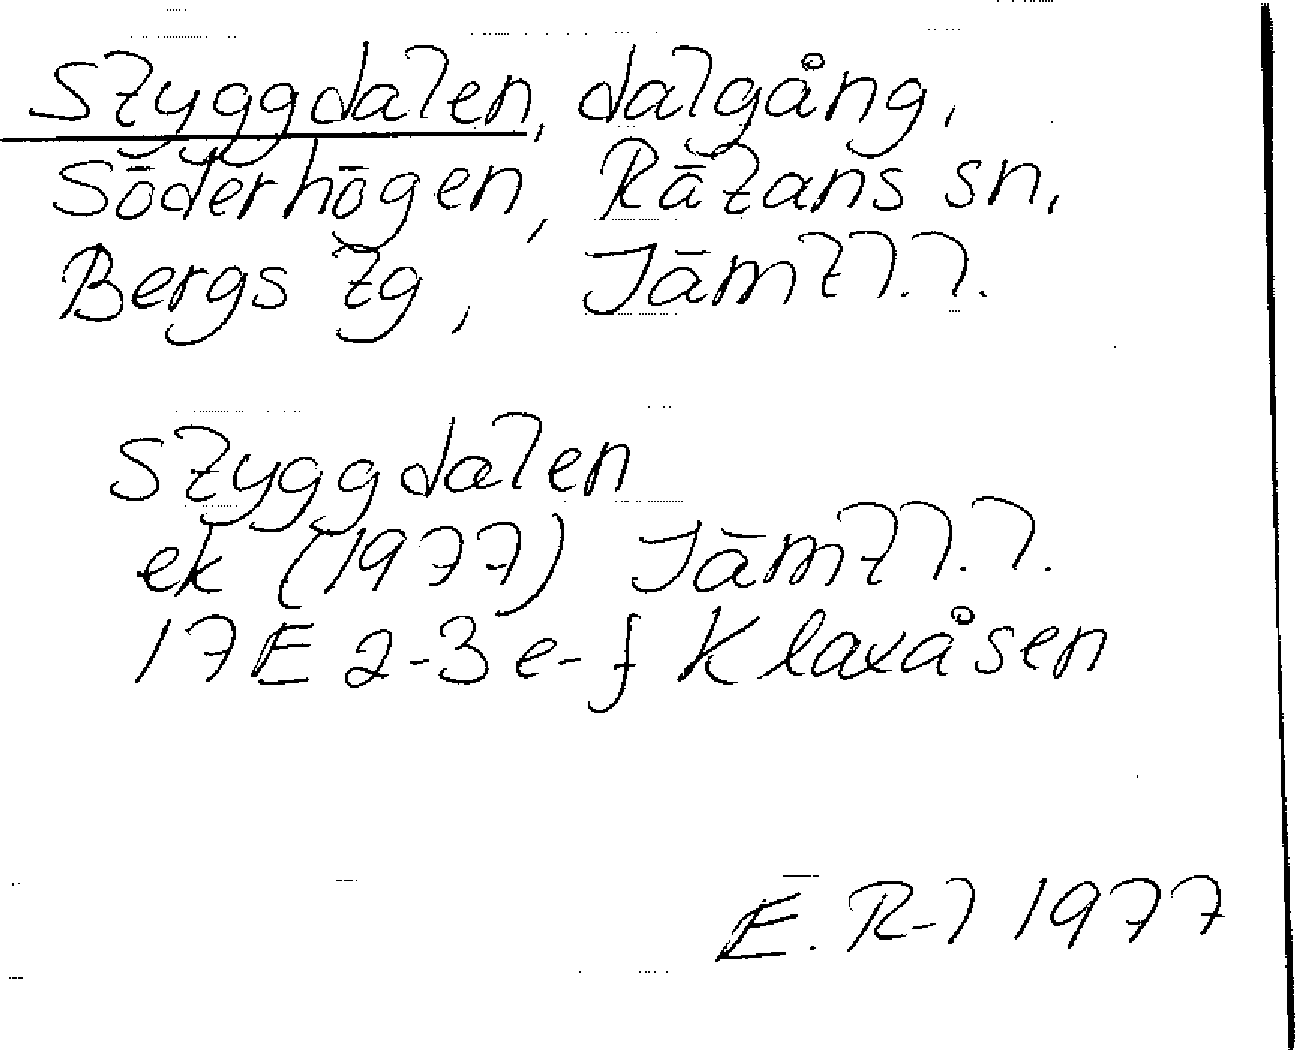 Styggdalen, dalgång,
Söderhögen, Rätans sn,
Bergs tg, Jämtl. l.
Styggdalen
ek (1977) Jämtl. l.
17E 2-3 e-f Klaxåsen
E. R-l 1977